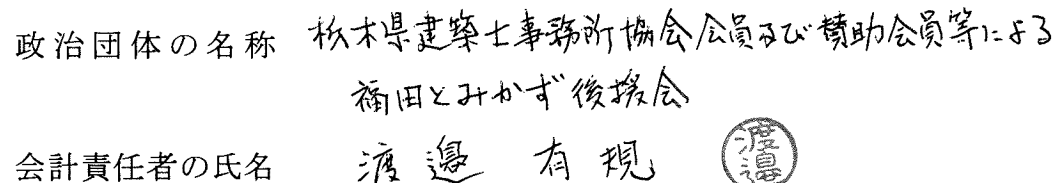 政治団体の名称 栃木県建築士事務所協会会員及び賛助会員等による
福田とみかず後援会
会計責任者の氏名 渡邉 有規 渡邉